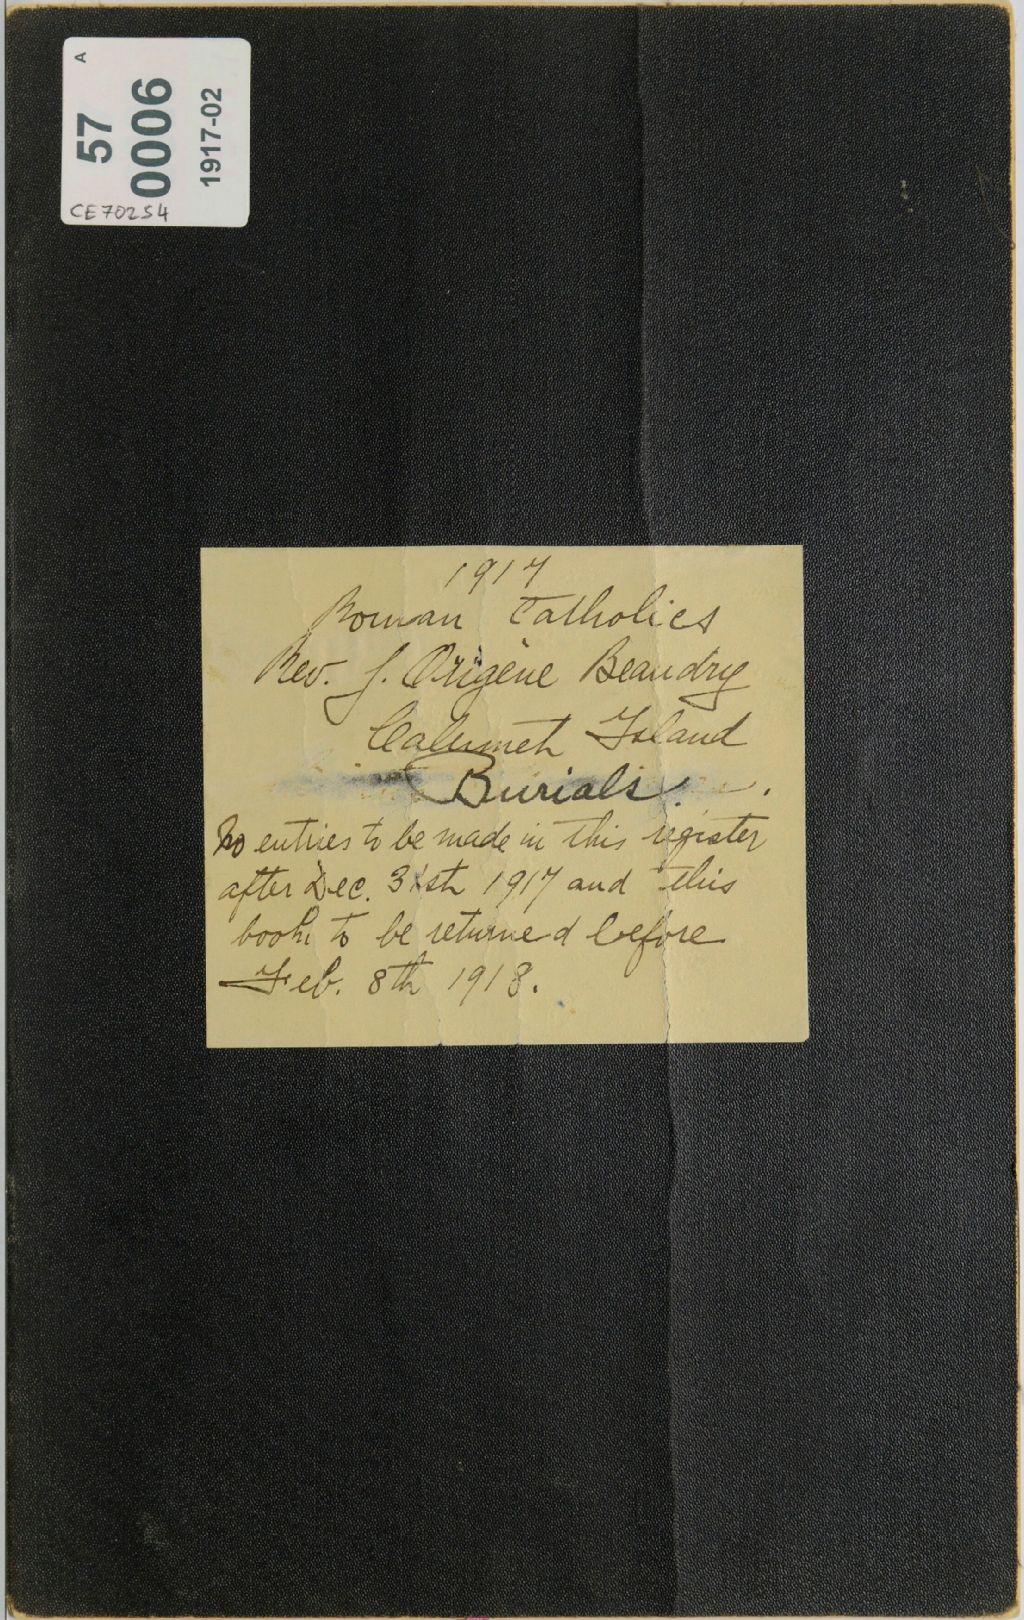 A
57
0006
1917-02
CE702S4
1917
Roman Catholics
Rev. J. Origène Beaudry
Calumet Island
Burials.
No entries to be made in this register
after Dec. 31st 1917 and this
book to be returned before
Feb. 8th 1918.